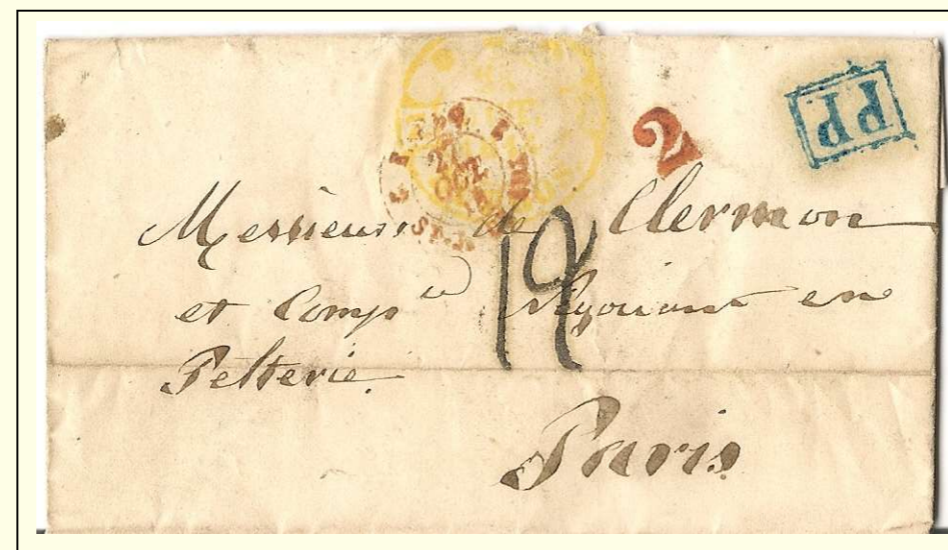 2
PP
19
Messieurs de Clermon
et Comp Négociant en
Pelterie.
Paris